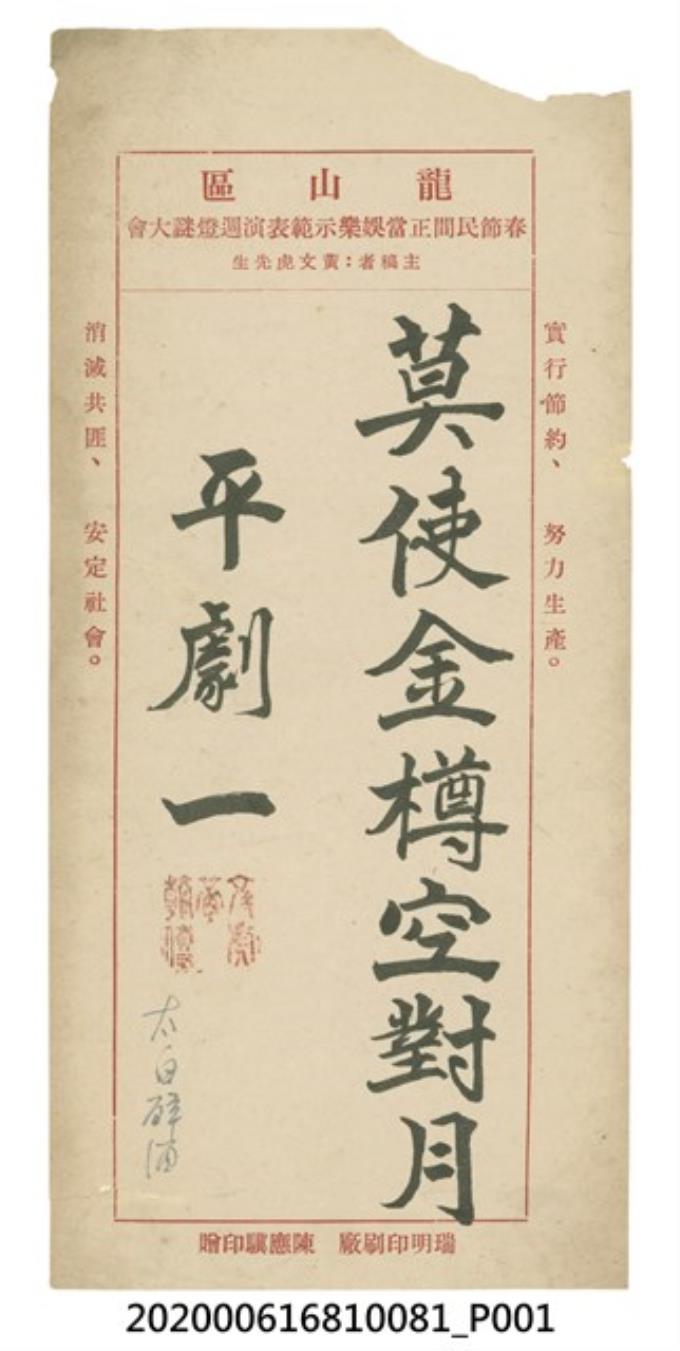 龍山區
春節民間正當娛樂示範表演週燈謎大會
主稿者：黃文虎先生
實行節約、努力生產。
莫使金樽空對月
平劇一
太白醉酒
消滅共匪、安定社會。
瑞明印刷廠 陳應驥印贈
202000616810081_P001